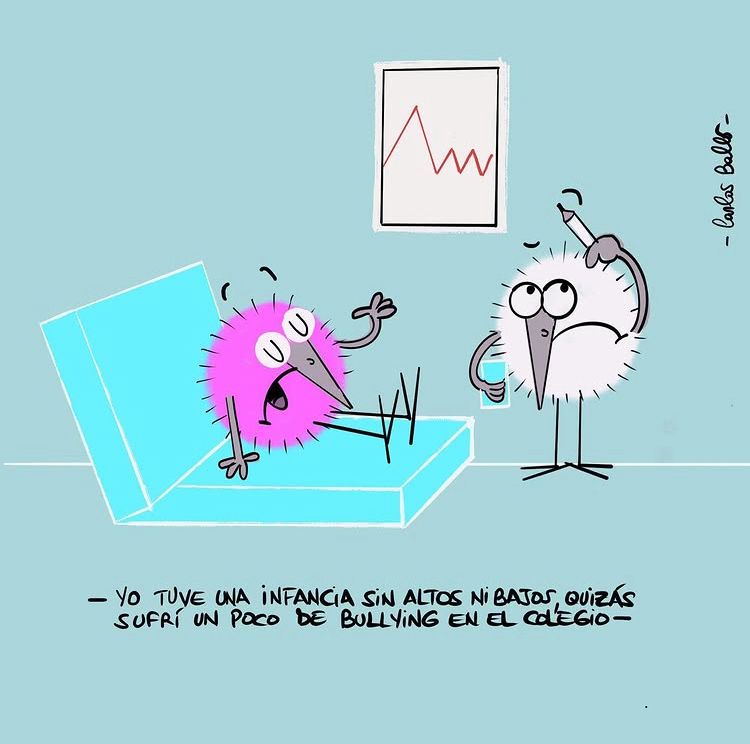 - Carlos Balló -
— YO TUVE UNA INFANCIA SIN ALTOS NI BAJOS, QUIZÁS
SUFRÍ UN POCO DE BULLYING EN EL COLEGIO —